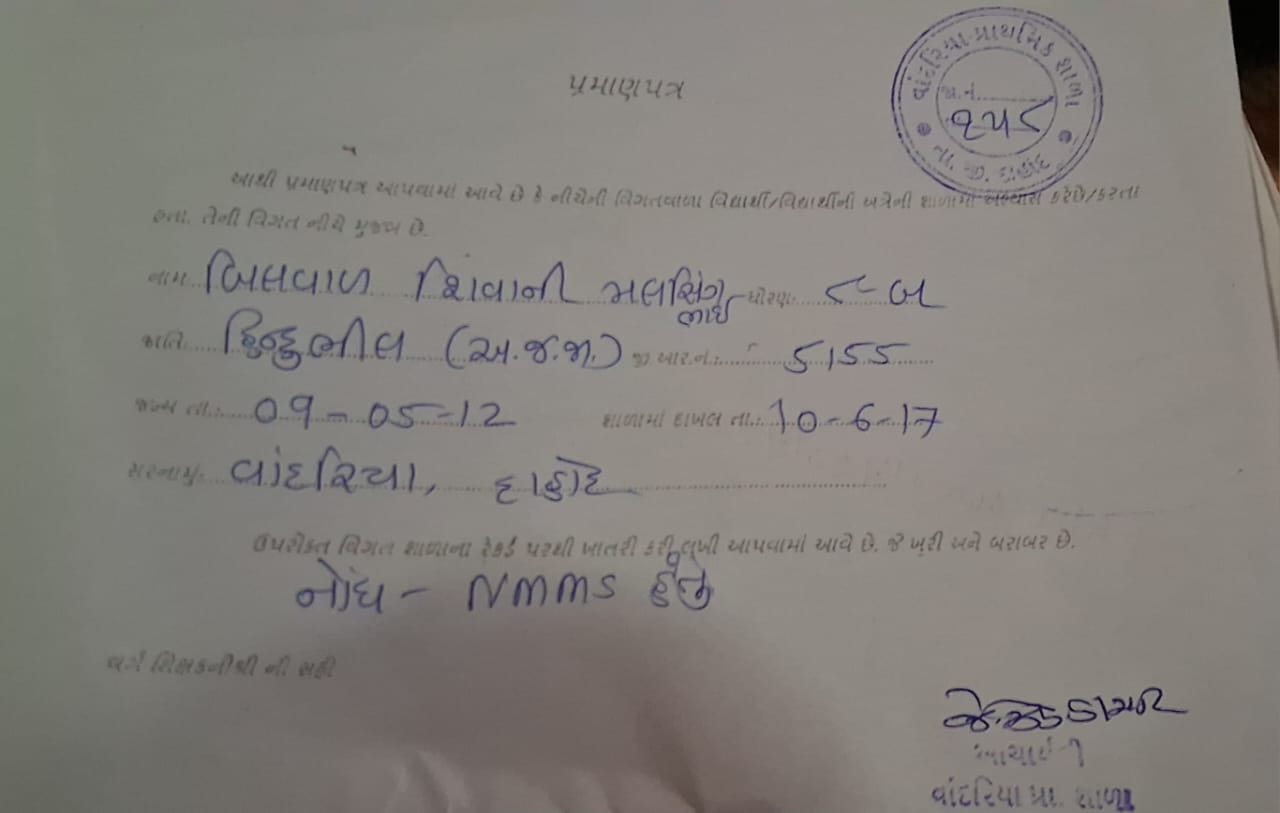 વાંદરિયા પ્રાથમિક શાળા
જા.નં.
૧૫૮
તા. જી. દાહોદ
પ્રમાણપત્ર
આથી પ્રમાણપત્ર આપવામાં આવે છે કે નીચેની વિગતવાળા વિદ્યાર્થી/વિદ્યાર્થીની અત્રેની શાળામાં અભ્યાસ કરેછે/કરતા
હતા. તેની વિગત નીચે મુજબ છે.
નામ બિલવાળ શિવાની મલસિંગભાઈ ધોરણ: ૮-બ
જાતિ: હિન્દુ ભીલ (અ.જ.જા.) જી.આર.નં.: 5155
જન્મ તા.: 09-05-12 શાળામાં દાખલ તા.: 10-6-17
સરનામુ: વાંદરિયા, દાહોદ
ઉપરોકત વિગત શાળાના રેકર્ડ પરથી ખાતરી કરી લખી આપવામાં આવે છે. જે ખરી અને બરાબર છે.
નોંધ - NMMS હેતુ
વર્ગ શિક્ષકનીશ્રી ની સહી
આચાર્ય-૧
વાંદરિયા પ્રા. શાળા